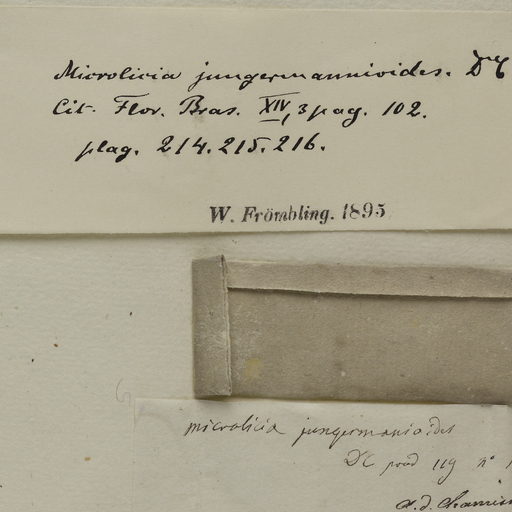 Microlicia jungermannioides. DC
Cit. Flor. Bras. XIV, 3 pag. 102.
plag. 214. 215. 216.
W. Frömbling. 1895
microlicia jungermanioides
DC prod 119 n° 1